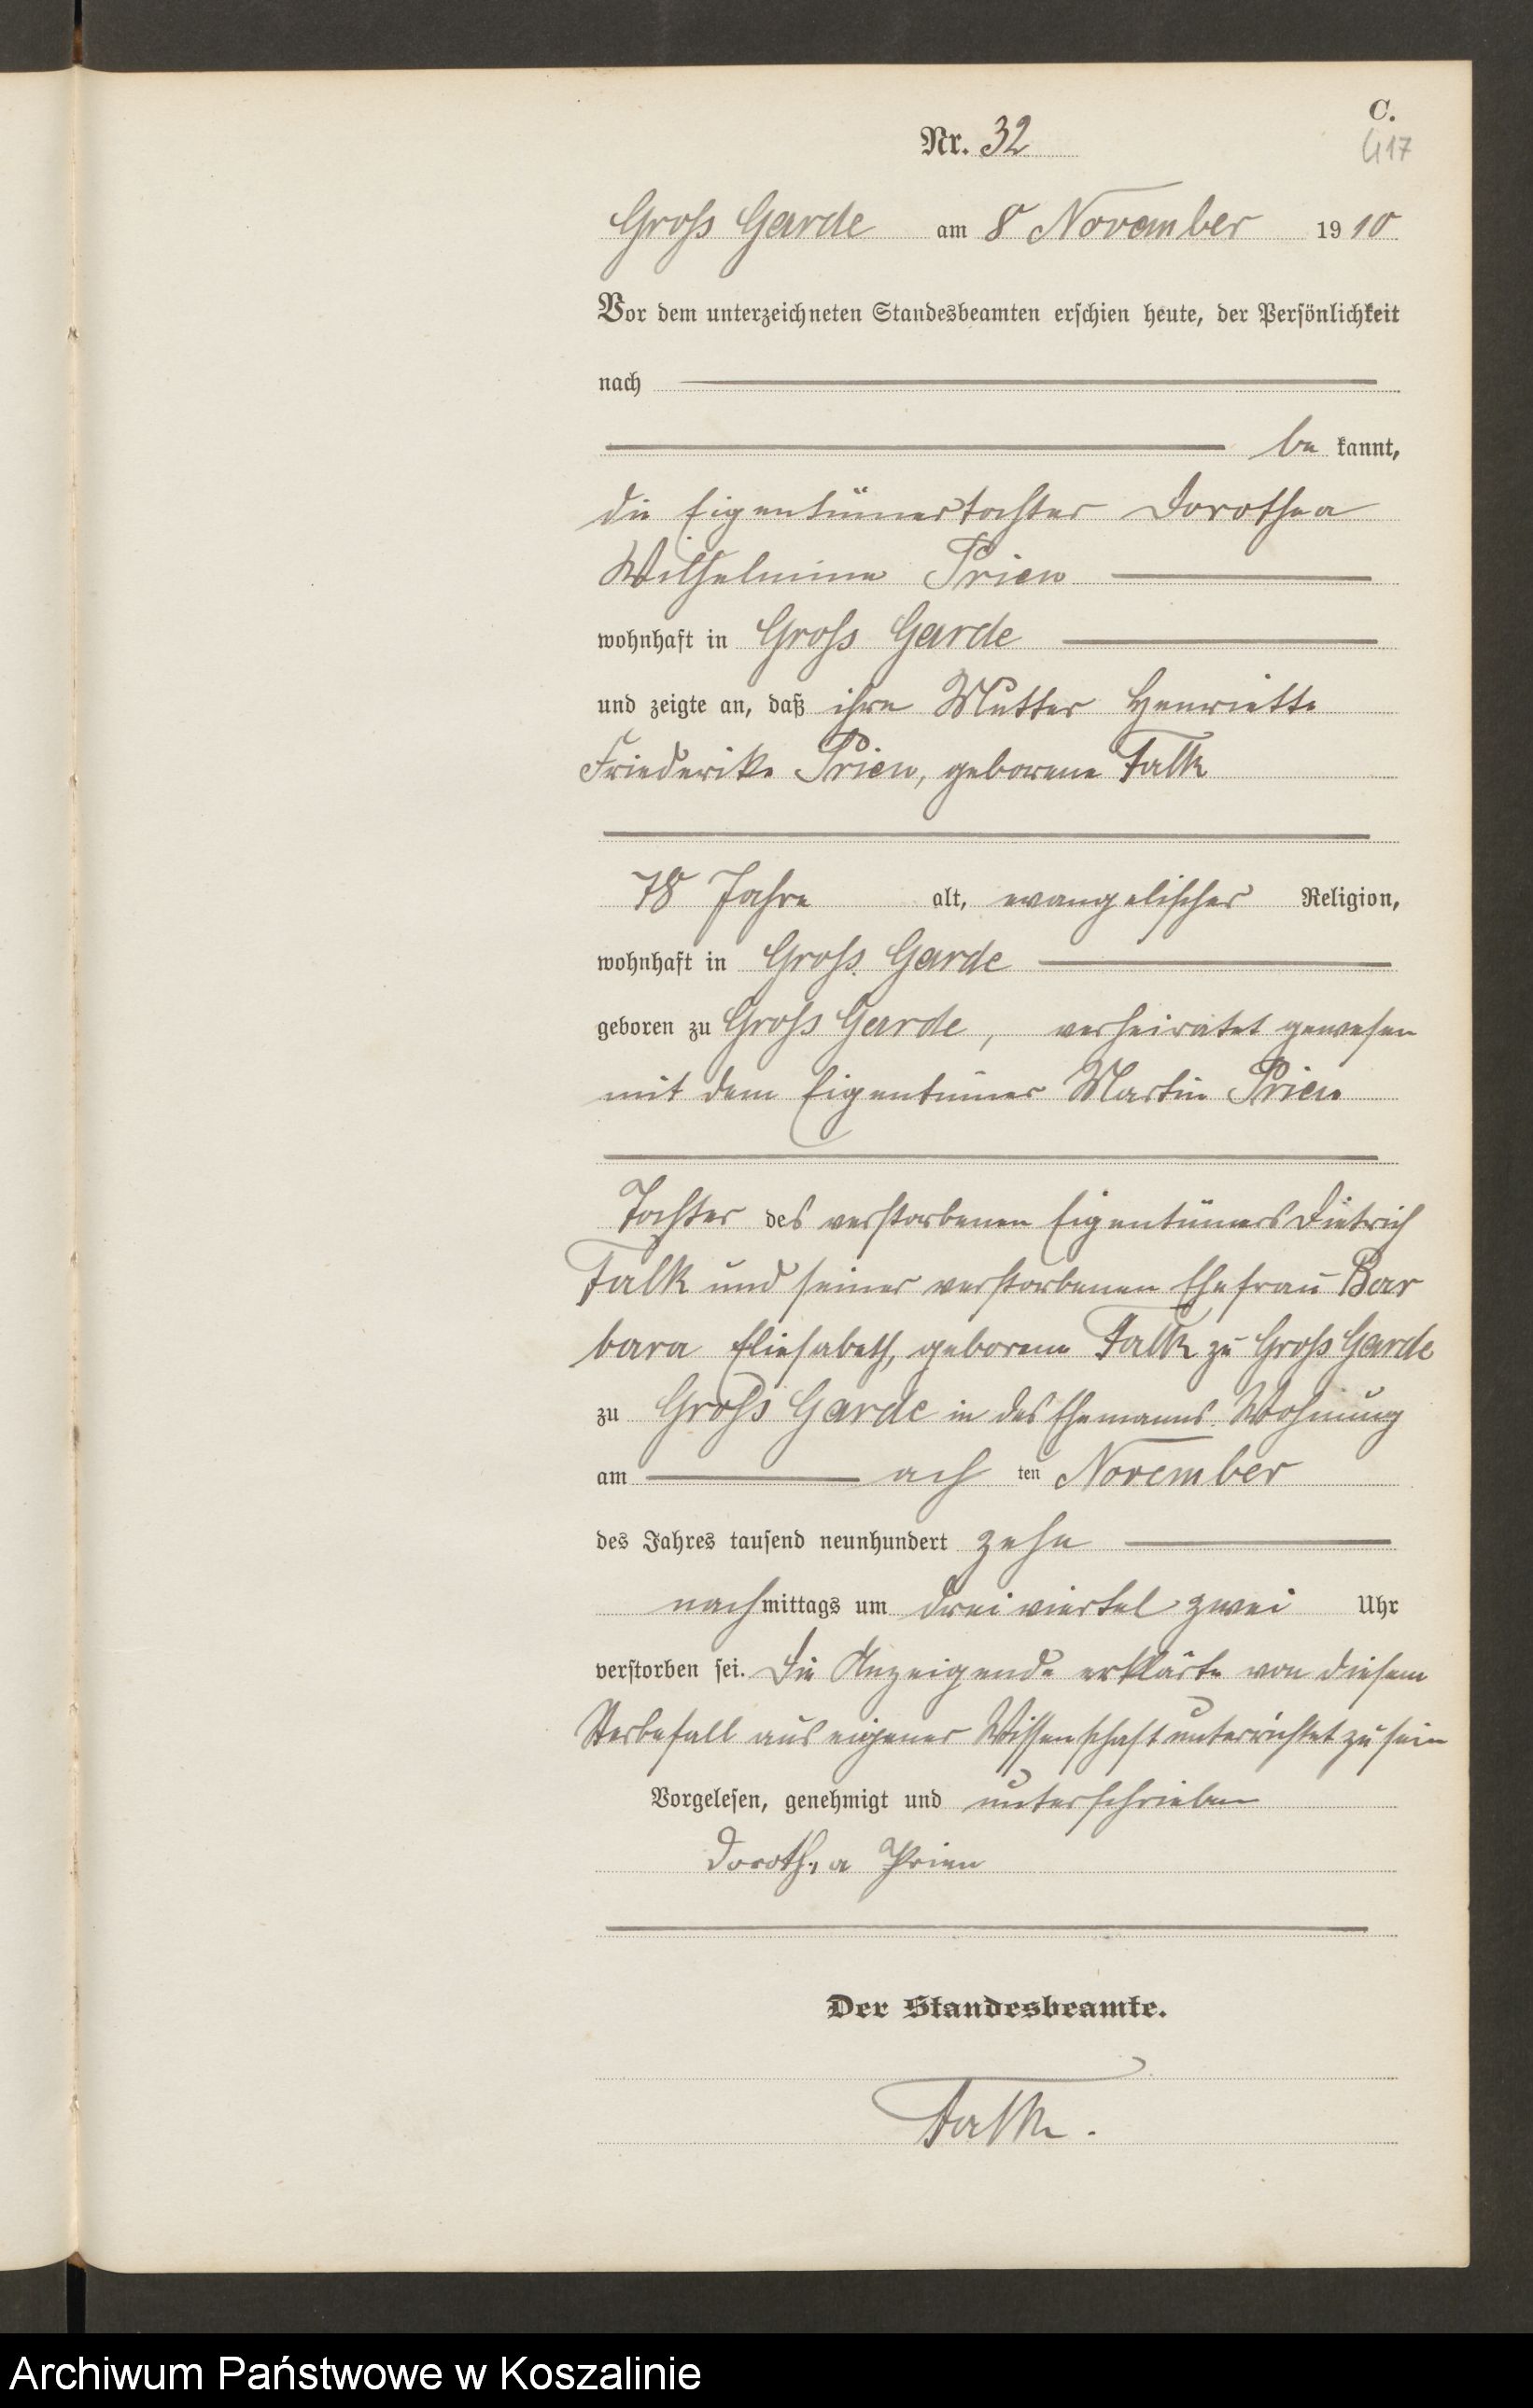 C.
Nr. 32
417
Gross Garde am 8 November 1910
Vor dem unterzeichneten Standesbeamten erschien heute, der Persönlichkeit
nach
be kannt,
die Eigentümertochter Dorothea
Wilhelmine Prien
wohnhaft in Gross Garde
und zeigte an, daß ihre Mutter Henriette
Friederike Prien, geborene Falk
78 Jahre alt, evangelischer Religion,
wohnhaft in Gross Garde
geboren zu Gross Garde, verheiratet gewesen
mit dem Eigentümer Martin Prien
Tochter des verstorbenen Eigentümers Dietrich
Falk und seiner verstorbenen Ehefrau Bar
bara Eliesabeth, geborene Falk zu Gross Garde
zu Gross Garde in des Ehemanns Wohnung
am ach ten November
des Jahres tausend neunhundert zehn
nachmittags um dreiviertel zwei Uhr
verstorben sei. Die Anzeigende erklärte von diesem
Sterbefall aus eigener Wissenschaft unterrichtet zu sein
Vorgelesen, genehmigt und unterschrieben
Dorothea Prien
Der Standesbeamte.
Falk.
Archiwum Państwowe w Koszalinie